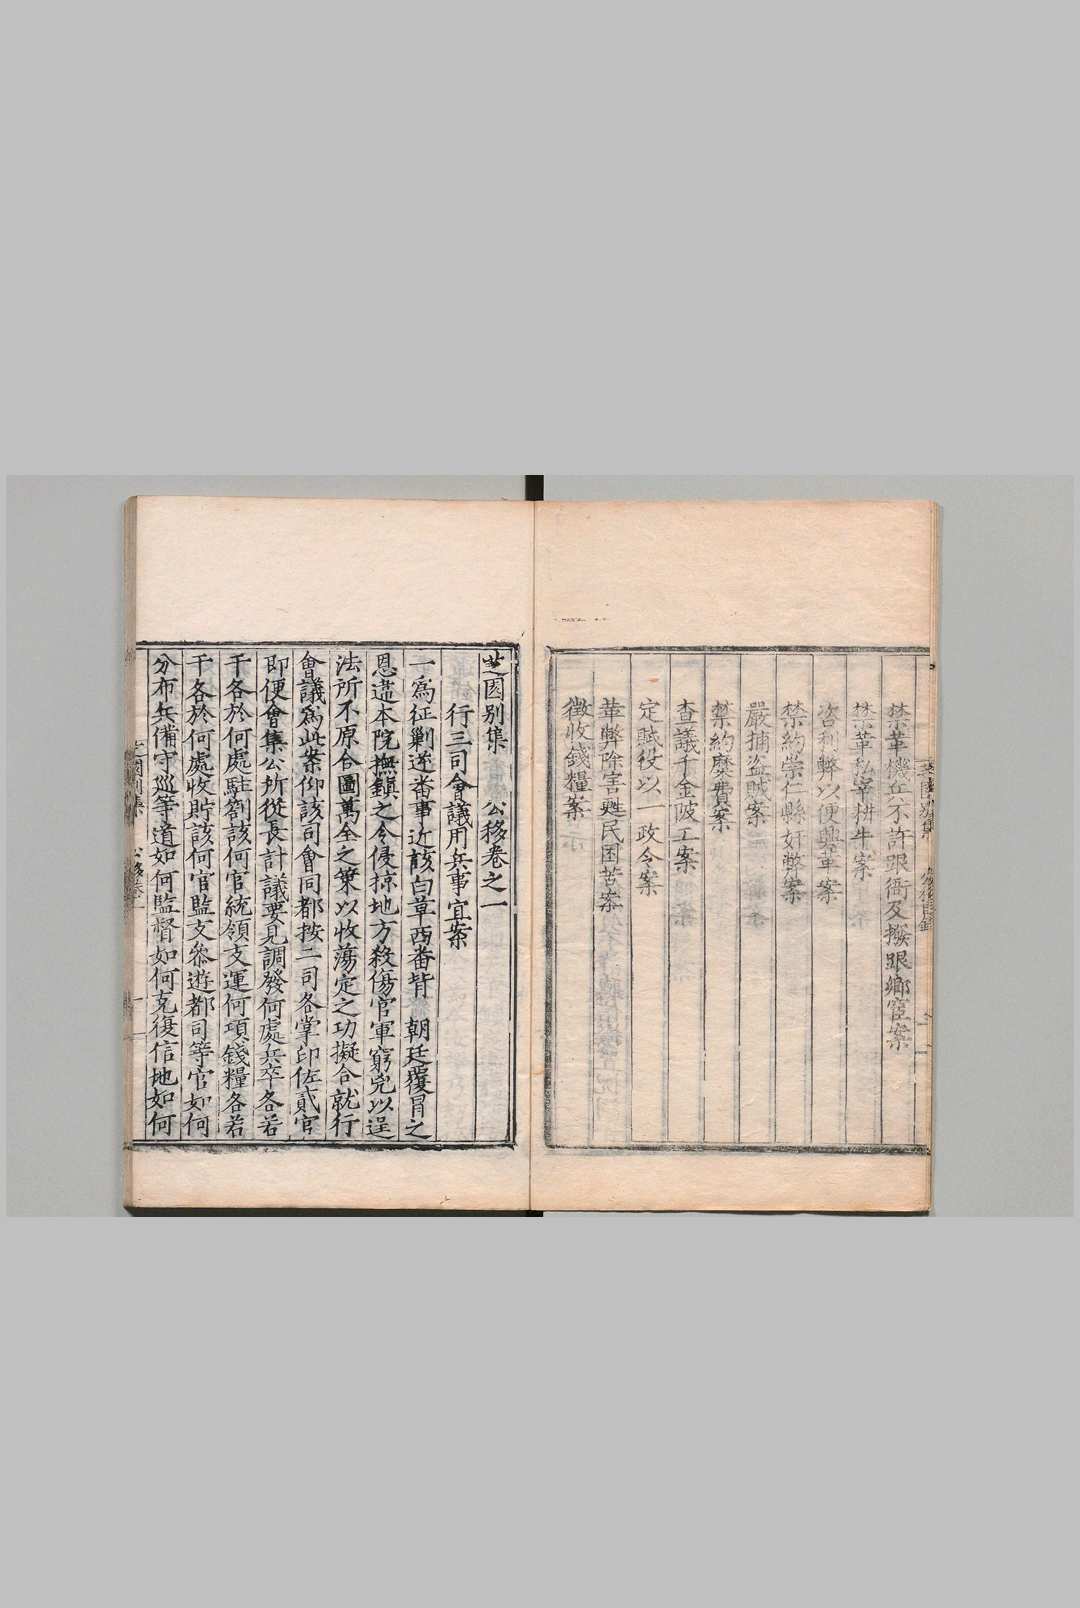 禁革機兵不許跟衙及撥跟鄉宦案
禁革私宰耕牛案
咨利弊以便興革案
禁約崇仁縣奸弊案
嚴捕盜賊案
禁約糜費案
查議千金陂工案
定賦役以一政令案
革弊除害甦民困苦案
徵收錢糧案
芝園别集 公移卷之一
行三司會議用兵事宜案
一爲征剿逆番事近該白草西番背 朝廷覆冐之
恩違本院撫鎮之令侵掠地方殺傷官軍窮兇以逞
法所不原合圖萬全之策以收蕩定之功擬合就行
會議爲此案仰該司會同都按二司各掌印佐貳官
即便會集公所從長計議要見調發何處兵卒各若
干各於何處駐劄該何官統領支運何項錢糧各若
干各於何處收貯該何官監支叅遊都司等官如何
分布兵備守巡等道如何監督如何克復信地如何